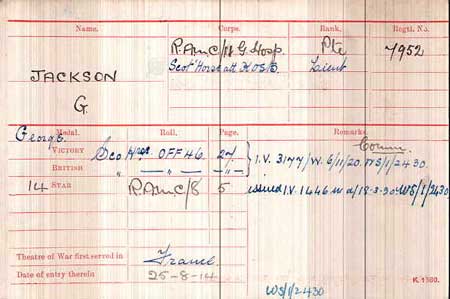 Name. Corps. Rank. Regtl. No.
R.A.M.C/11 G. Hosp. Pte 7952
JACKSON Scot Horse att K.O.S.B. Lieut
G.
George.
Medal. Roll. Page. Remarks.
Comm.
VICTORY Sco H OFF 46. 27 I.V. 3177/W. 6/11/20. WS/1/2430.
BRITISH — „ — „
14 STAR R.A.M.C/8 5 issued I.V. 1446 18-3-30 WS/1/2430
Theatre of War first served in France.
Date of entry therein 25-8-14
WS/1/2430 K. 1380.